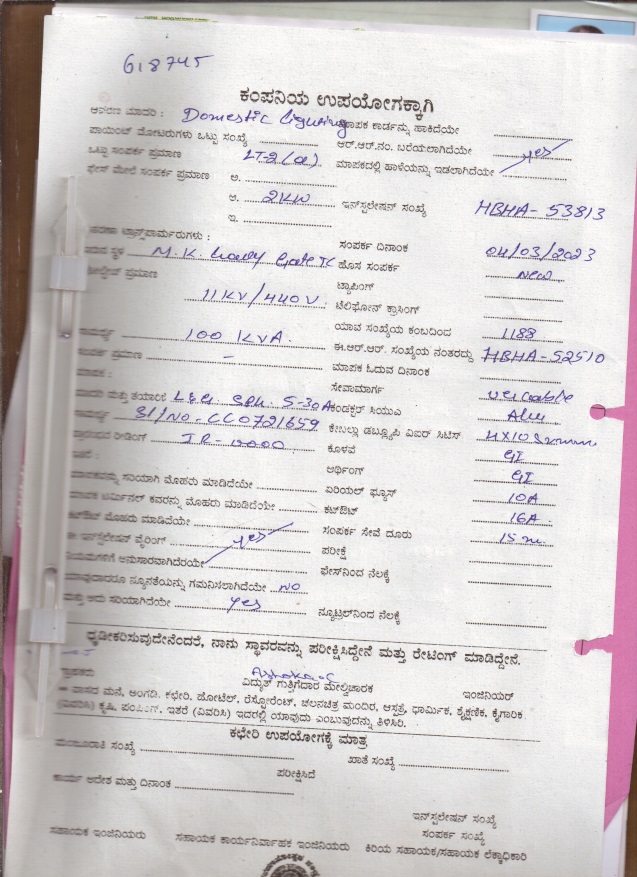 618745
ಕಂಪನಿಯ ಉಪಯೋಗಕ್ಕಾಗಿ
ಮಾದರಿ : Domestic lighting ಮಾಪಕ ಕಾರ್ಡನ್ನು ಹಾಕಿದೆಯೇ
ಪಾಯಿಂಟ್ ಮೋಟರುಗಳು ಒಟ್ಟು ಸಂಖ್ಯೆ ಆರ್.ಆರ್.ನಂ. ಬರೆಯಲಾಗಿದೆಯೇ yes
ಒಟ್ಟು ಸಂಪರ್ಕ ಪ್ರಮಾಣ LT-2(a) ಮಾಪಕದಲ್ಲಿ ಹಾಳೆಯನ್ನು ಇಡಲಾಗಿದೆಯೇ
ಫೇಸ್ ಮೇಲೆ ಸಂಪರ್ಕ ಪ್ರಮಾಣ ಅ.
ಆ. 2KW ಇನ್‌ಸ್ಟಲೇಷನ್ ಸಂಖ್ಯೆ HBHA-53813
ಇ.
ಟ್ರಾನ್ಸ್‌ಫಾರ್ಮರುಗಳು : ಸಂಪರ್ಕ ದಿನಾಂಕ 04/03/2023
ಸ್ಥಳ M.K. Gate TC ಹೊಸ ಸಂಪರ್ಕ New
ಪ್ರಮಾಣ 11KV/440V. ಟ್ಯಾಪಿಂಗ್
ಟೆಲಿಫೋನ್ ಕ್ರಾಸಿಂಗ್
ಯಾವ ಸಂಖ್ಯೆಯ ಕಂಬದಿಂದ 1188
ಸಾಮರ್ಥ್ಯ 100 KVA. ಈ.ಆರ್.ಆರ್. ಸಂಖ್ಯೆಯ ನಂತರದ್ದು HBHA-52510
ಸಂಪರ್ಕ ಪ್ರಮಾಣ - ಮಾಪಕ ಓದುವ ದಿನಾಂಕ
ಮಾಪಕ : ಸೇವಾಮಾರ್ಗ
ಮಾದರಿ ಮತ್ತು ತಯಾರಿಕೆ L&G. 5-30A ಕಂಡಕ್ಟರ್ ಸಿಯುಎ Alu
ಸಾಮರ್ಥ್ಯ Sl/No-CC0721659 ಕೇಬಲ್ಲು ಡಬ್ಲ್ಯೂಪಿ ವಿಐಆರ್ ಸಿಟಿಸ್
ಪ್ರಾರಂಭದ ರೀಡಿಂಗ್ IR-00000 ಕೊಳವೆ GI
ಅರ್ಥಿಂಗ್ GI
ಸರಿಯಾಗಿ ಮೊಹರು ಮಾಡಿದೆಯೇ ಏರಿಯಲ್ ಫ್ಯೂಸ್ 10A
ಮಾಪಕ ಟರ್ಮಿನಲ್ ಕವರನ್ನು ಮೊಹರು ಮಾಡಿದೆಯೇ ಕಟ್‌ಔಟ್ 16A.
ಕಟ್‌ಔಟ್ ಮೊಹರು ಮಾಡಿದೆಯೇ ಸಂಪರ್ಕ ಸೇವೆ ದೂರು 15 m.
ಈ ಇನ್‌ಸ್ಟಲೇಷನ್ ವೈರಿಂಗ್ yes ಪರೀಕ್ಷೆ
ನಿಯಮಗಳಿಗೆ ಅನುಸಾರವಾಗಿದೆಯೇ ಫೇಸ್‌ನಿಂದ ನೆಲಕ್ಕೆ
ನ್ಯೂನತೆಯನ್ನು ಗಮನಿಸಲಾಗಿದೆಯೇ NO
ಮತ್ತು ಅದು ಸರಿಯಾಗಿದೆಯೇ yes ನ್ಯೂಟ್ರಲ್‌ನಿಂದ ನೆಲಕ್ಕೆ
ಧೃಡೀಕರಿಸುವುದೇನೆಂದರೆ, ನಾನು ಸ್ಥಾವರವನ್ನು ಪರೀಕ್ಷಿಸಿದ್ದೇನೆ ಮತ್ತು ರೇಟಿಂಗ್ ಮಾಡಿದ್ದೇನೆ.
ಗ್ರಾಹಕರು ವಿದ್ಯುತ್ ಗುತ್ತಿಗೆದಾರ ಮೇಲ್ವಿಚಾರಕ ಇಂಜಿನಿಯರ್
ವಾಸದ ಮನೆ, ಅಂಗಡಿ, ಕಛೇರಿ, ಹೋಟೆಲ್, ರೆಸ್ಟೋರೆಂಟ್, ಚಲನಚಿತ್ರ ಮಂದಿರ, ಆಸ್ಪತ್ರೆ, ಧಾರ್ಮಿಕ, ಶೈಕ್ಷಣಿಕ, ಕೈಗಾರಿಕ
(ವಿವರಿಸಿ) ಕೃಷಿ, ಇತರೆ (ವಿವರಿಸಿ) ಇದರಲ್ಲಿ ಯಾವುದು ಎಂಬುವುದನ್ನು ತಿಳಿಸಿರಿ.
ಕಛೇರಿ ಉಪಯೋಗಕ್ಕೆ ಮಾತ್ರ
ಮಂಜೂರಾತಿ ಸಂಖ್ಯೆ ಖಾತೆ ಸಂಖ್ಯೆ
ಪರೀಕ್ಷಿಸಿದೆ
ಕಾರ್ಯ ಆದೇಶ ಮತ್ತು ದಿನಾಂಕ
ಇನ್‌ಸ್ಟಲೇಷನ್ ಸಂಖ್ಯೆ
ಸಂಪರ್ಕ ಸಂಖ್ಯೆ
ಸಹಾಯಕ ಇಂಜಿನಿಯರು ಸಹಾಯಕ ಕಾರ್ಯನಿರ್ವಾಹಕ ಇಂಜಿನಿಯರು ಕಿರಿಯ ಸಹಾಯಕ/ಸಹಾಯಕ ಲೆಕ್ಕಾಧಿಕಾರಿ